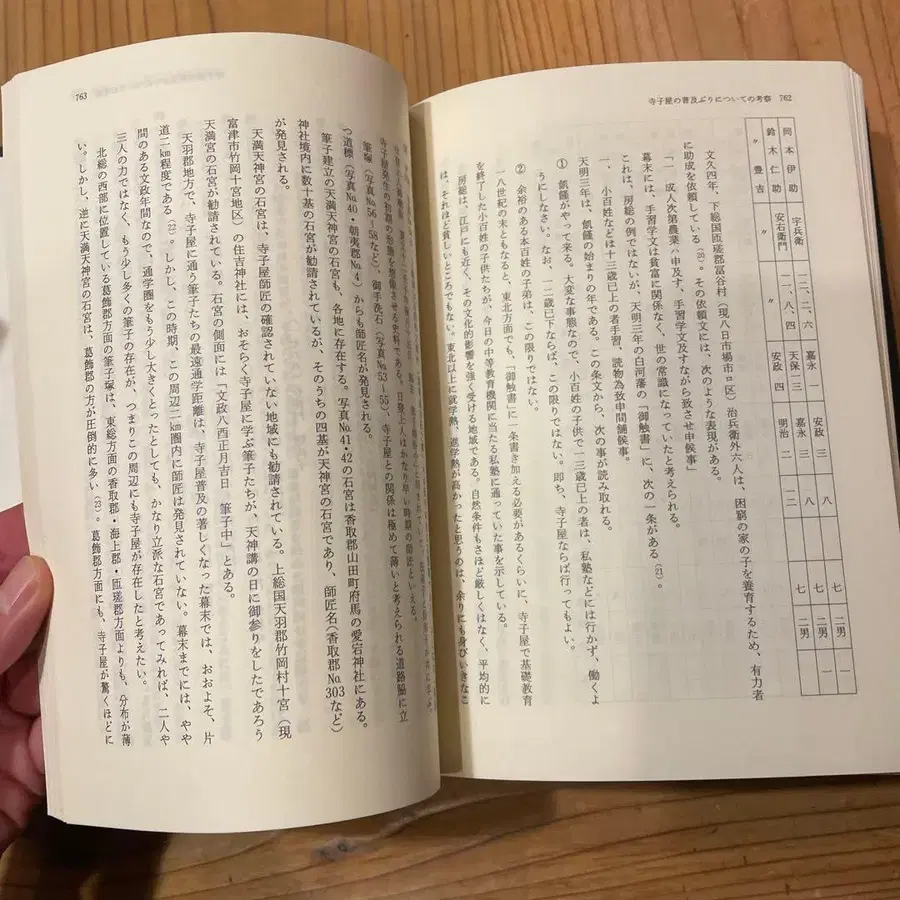 寺子屋の普及ぶりについての考察 762
岡本伊助 宇兵衛 二二、六 嘉永一 安政三 八 七 二男 一
鈴木仁助 安右衛門 二、八、四 天保三 嘉永三 八 七 二男
〃 豊吉 〃 安政四 明治二 二 七 二男
文久四年、下総国匝瑳郡富谷村(現八日市場市ロ区)治兵衛外六人は、困窮の家の子を養育するため、有力者
に助成を依頼している(20)。その依頼文には、次のような表現がある。
「一 成人次第農業ハ申及す、手習学文及すながら致させ申候事」
幕末には、手習学文は貧富に関係なく、世の常識になっていたと考えられる。
これは、房総の例ではないが、天明三年の白河藩の「御触書」に、次の一条がある(21)。
一、小百姓などは十三已上の者手習、読物為致申間舗候事。
天明三年は、飢饉の始まりの年である。この条文から、次の事が読み取れる。
① 飢饉がやって来る。大変な事態なので、小百姓の子供で一三歳已上の者は、私塾などには行かず、働くよ
うにしなさい。なお、一二歳已下ならば、この限りではない。即ち、寺子屋ならば行ってもよい。
② 余裕のある本百姓の子弟は、この限りではない。
一八世紀の末ともなると、東北方面でも、「御触書」に一条書き加える必要があるくらいに、寺子屋で基礎教育
を終了した小百姓の子供たちが、今日の中等教育機関に当たる私塾に通っていた事を示している。
房総は、江戸にも近く、その文化的影響を強く受ける地域である。自然条件もさほど厳しくはなく、平均的に
は、それほど貧しいところでもない。東北以上に就学熱、進学熱が高かったと思うのは、余りにも身びいきなこ
763
寺子屋発生の初期の形態を想像させる史料である。日登上人はかなり早い時期の師匠といえる。
筆塚(写真No.56・58など)、御手洗石(写真No.53・55)、寺子屋との関係は極めて薄いと考えられる道路脇に立
つ道標(写真No.40・朝夷郡No.4)からも師匠名が発見される。
筆子建立の天満天神宮の石宮も、各地に存在する。写真No.41、42の石宮は香取郡山田町府馬の愛宕神社にある。
神社境内に数十基の石宮が勧請されているが、そのうちの四基が天神宮の石宮であり、師匠名(香取郡No.303など)
が発見される。
天満天神宮の石宮は、寺子屋師匠の確認されていない地域にも勧請されている。上総国天羽郡竹岡村十宮(現
富津市竹岡十宮地区)の住吉神社には、おそらく寺子屋に学ぶ筆子たちが、天神講の日に御参りをしたであろう
天満宮の石宮が勧請されている。石宮の側面には「文政八酉正月吉日 筆子中」とある。
天羽郡地方で、寺子屋に通う筆子たちの最遠通学距離は、寺子屋普及の著しくなった幕末では、おおよそ、片
道二km程度である(22)。しかし、この時期、この周辺二km圏内に師匠は発見されていない。幕末までには、やや
間のある文政年間なので、通学圏をもう少し大きくとったとしても、かなり立派な石宮であってみれば、二人や
三人の力ではなく、もう少し多くの筆子の存在が、つまりこの周辺にも寺子屋が存在したと考えたい。
北総の西部に位置している葛飾郡方面の筆子塚は、東総方面の香取郡・海上郡・匝瑳郡方面よりも、分布が薄
い。しかし、逆に天満天神宮の石宮は、葛飾郡の方が圧倒的に多い(23)。葛飾郡方面にも、寺子屋が驚くほどに